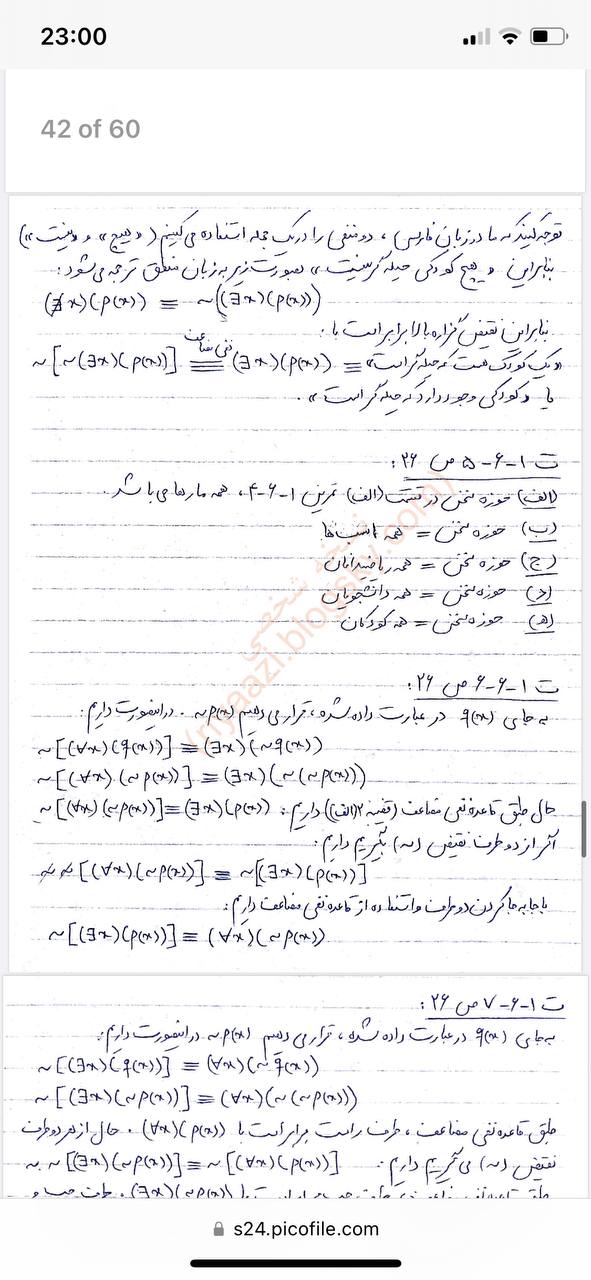 23:00
42 of 60
توجه کنید که ما در زبان فارسی، دو منفی را در یک جمله استفاده می‌کنیم («هیچ» و «نیست»)
بنابراین «هیچ کودکی حیله گر نیست» بصورت زیر به زبان منطق ترجمه می‌شود:
(∄x)(p(x)) ≡ ~((∃x)(p(x)))
بنابراین نقیض گزاره بالا برابر است با:
~[~(∃x)(p(x))] ≡ (نفی مضاعف) (∃x)(p(x)) ≡ «یک کودک هست که حیله گر است»
یا «کودکی وجود دارد که حیله گر است».
ت ۱-۶-۵ ص ۲۶:
(الف) حوزه سخن در قسمت (الف) تمرین ۱-۶-۴، همه مارها می باشد.
(ب) حوزه سخن = همه اسب‌ها
(ج) حوزه سخن = همه ریاضیدانان
(د) حوزه سخن = همه دانشجویان
(هـ) حوزه سخن = همه کودکان
ت ۱-۶-۶ ص ۲۶:
به جای q(x) در عبارت داده شده، قرار می دهیم ~p(x). در اینصورت داریم:
~[(∀x)(q(x))] ≡ (∃x)(~q(x))
~[(∀x)(~p(x))] ≡ (∃x)(~(~p(x)))
حال طبق قاعده نفی مضاعف (قضیه ۲(الف)) داریم: ~[(∀x)(~p(x))] ≡ (∃x)(p(x))
اگر از دو طرف نقیض (~) بگیریم داریم:
~~[(∀x)(~p(x))] ≡ ~[(∃x)(p(x))]
با جابه جا کردن دو طرف و استفاده از قاعده نفی مضاعف داریم:
~[(∃x)(p(x))] ≡ (∀x)(~p(x))
ت ۱-۶-۷ ص ۲۶:
به جای q(x) در عبارت داده شده، قرار می دهیم ~p(x) در اینصورت داریم:
~[(∃x)(q(x))] ≡ (∀x)(~q(x))
~[(∃x)(~p(x))] ≡ (∀x)(~(~p(x)))
طبق قاعده نفی مضاعف، طرف راست برابر است با (∀x)(p(x)). حال از هر دو طرف
نقیض (~) می گیریم داریم: ~~[(∃x)(~p(x))] ≡ ~[(∀x)(p(x))]
s24.picofile.com